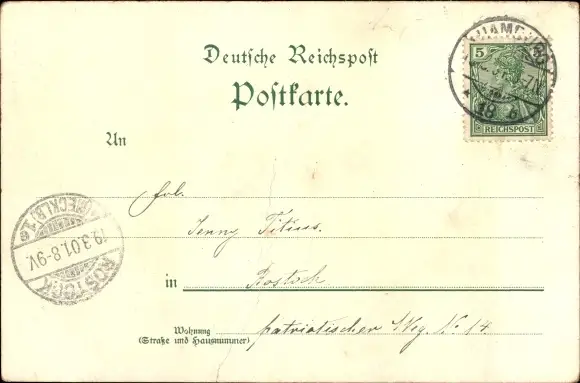 Deutsche Reichspost
Postkarte.
5
REICHSPOST
HAMBURG
19 6
An
Frl.
Jenny Titius.
in Rostock
Wohnung
(Straße und Hausnummer)
patriotischer Weg. No 14
ROSTOCK (MECKLB) 1 c
19.3.01.8-9V.